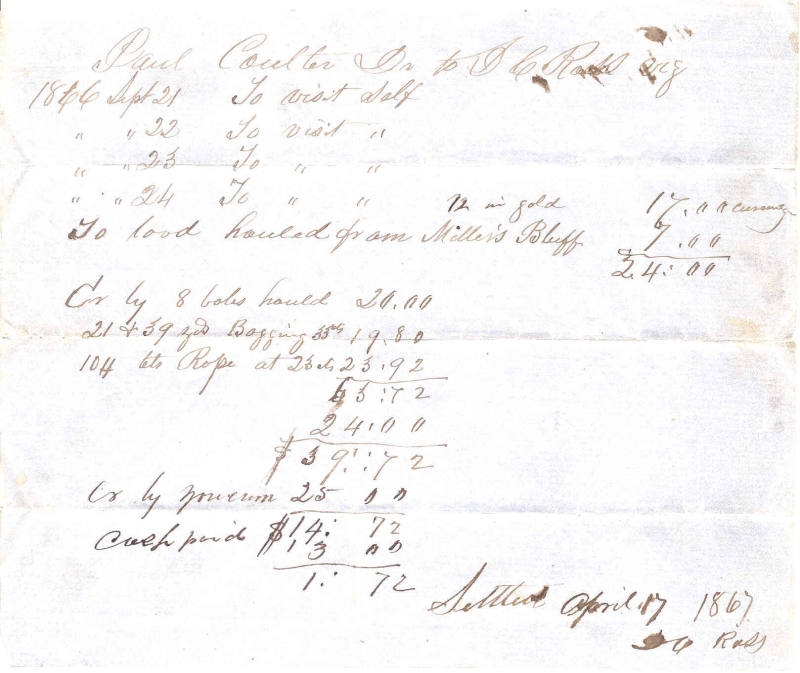 Paul Coulter Dr to D C Ross
1866 Sept 21 To visit Self
" " 22 To visit "
" " 23 To " "
" " 24 To " " 12 in gold 17.00 currency
To load hauled from Miller's Bluff 7.00
24:00
Cr by 8 bales hauld 20.00
21 & 39 yds Bagging 33cts 19.80
104 lbs Rope at 23 cts 23.92
63:72
24:00
$39:72
Cr by 25 00
$14:72
Cash paid 13 00
1:72
Settled April 17 1867
D C Ross